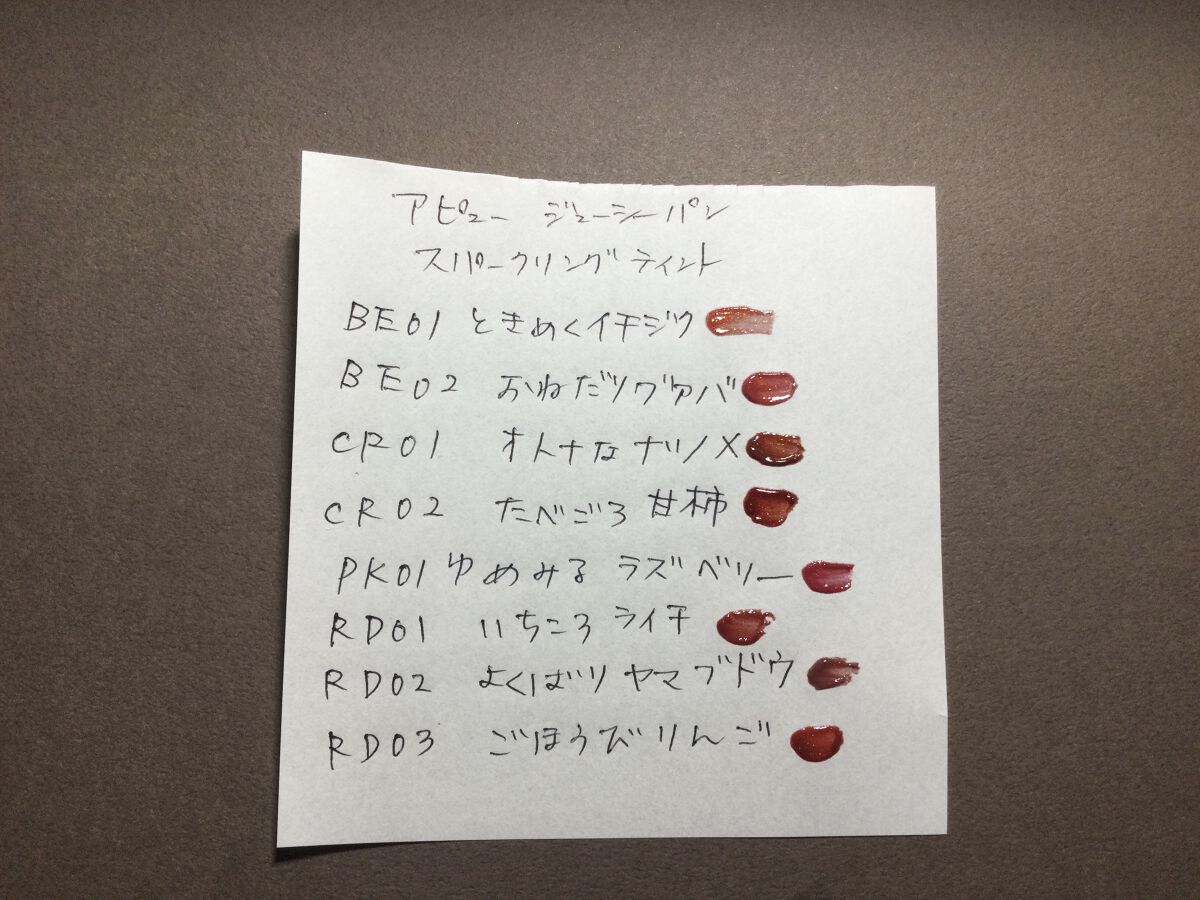 アピュー ジューシーパン
スパークリングティント
BE01 ときめくイチジク
BE02 おねだりグァバ
CR01 オトナなナツメ
CR02 たべごろ甘柿
PK01 ゆめみるラズベリー
RD01 いちころライチ
RD02 よくばりヤマブドウ
RD03 ごほうびりんご